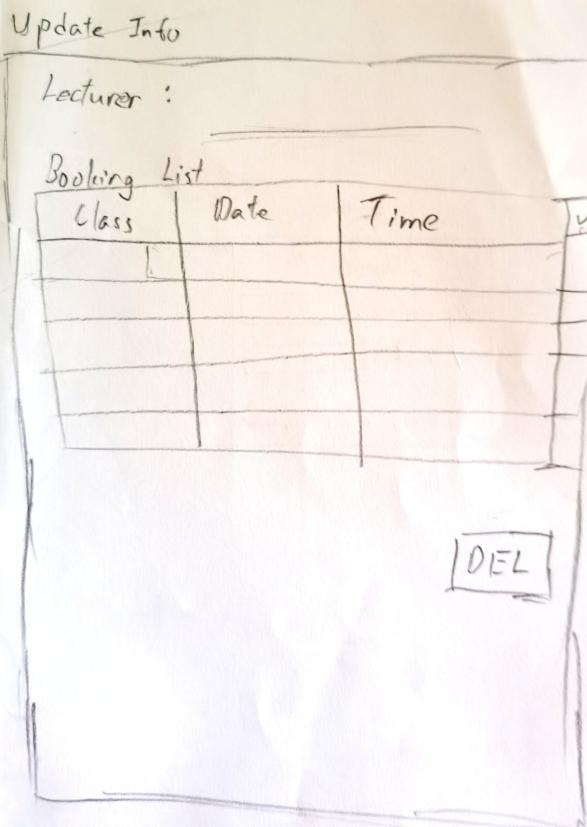 Update Info
Lecturer :
Booking List
Class Date Time
DEL